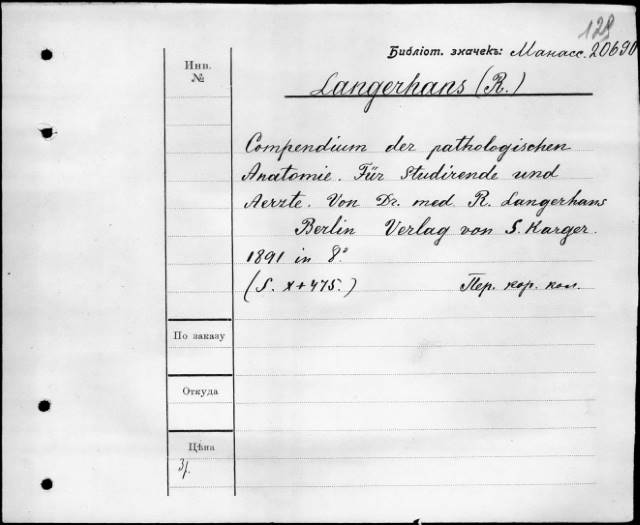 128
Библіот. значекъ: Манасс. 20690
Инв.
№
Langerhans (R.)
Compendium der pathologischen
Anatomie. Für Studirende und
Aerzte. Von Dr. med. R. Langerhans
Berlin Verlag von S. Karger.
1891 in 8°
(S. X+475.) Пер. кор. кол.
По заказу
Откуда
Цѣна
3р.